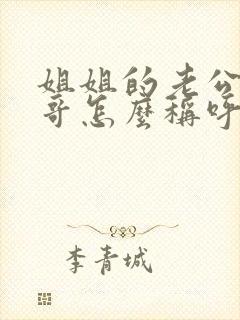 姐姐的老公
哥怎麼稱呼
李青城